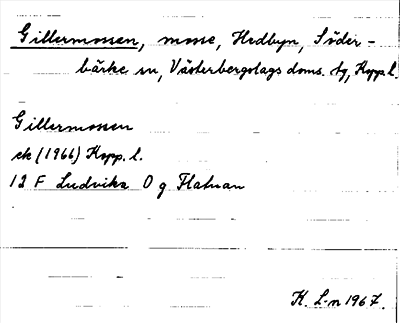 Gillermossen, mosse, Hedbyn, Söder-
bärke sn, Västerbergslags doms. tg, Kopp. l.
Gillermossen
ek (1966) Kopp. l.
12 F Ludvika O g Flatnan
K. L-n 1967.